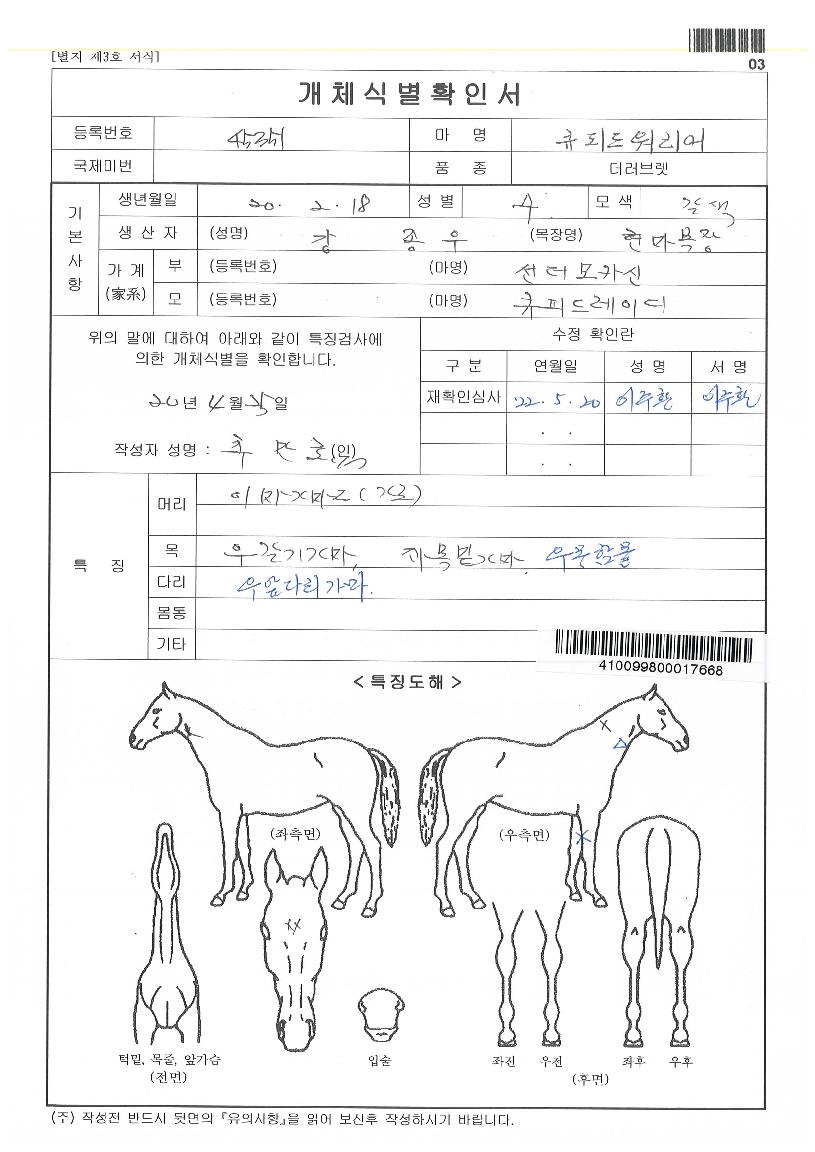 [별지 제3호 서식]
03
개체식별확인서
등록번호 마 명 큐피드워리어
국제미번 품 종 더러브렛
기본사항
생년월일 20. 2. 18 성별 수 모색 갈색
생 산 자 (성명) 강 종 우 (목장명)
가 계 (家系) 부 (등록번호) (마명) 선더모카신
모 (등록번호) (마명) 큐피드레이디
위의 말에 대하여 아래와 같이 특징검사에
의한 개체식별을 확인합니다.
20년 4월 25일
작성자 성명 : (인)
수정 확인란
구 분 연월일 성 명 서 명
재확인심사 '22. 5. 20 이주환 이주환
. .
. .
특 징
머리 이마쌍가마(가로)
목 우갈기가마, 좌목밑가마, 우목함몰
다리 우앞다리가마.
몸통
기타
410099800017668
< 특징도해 >
(좌측면) (우측면)
턱밑, 목줄, 앞가슴 입술 좌전 우전 좌후 우후
(전면) (후면)
(주) 작성전 반드시 뒷면의 『유의사항』을 읽어 보신후 작성하시기 바랍니다.